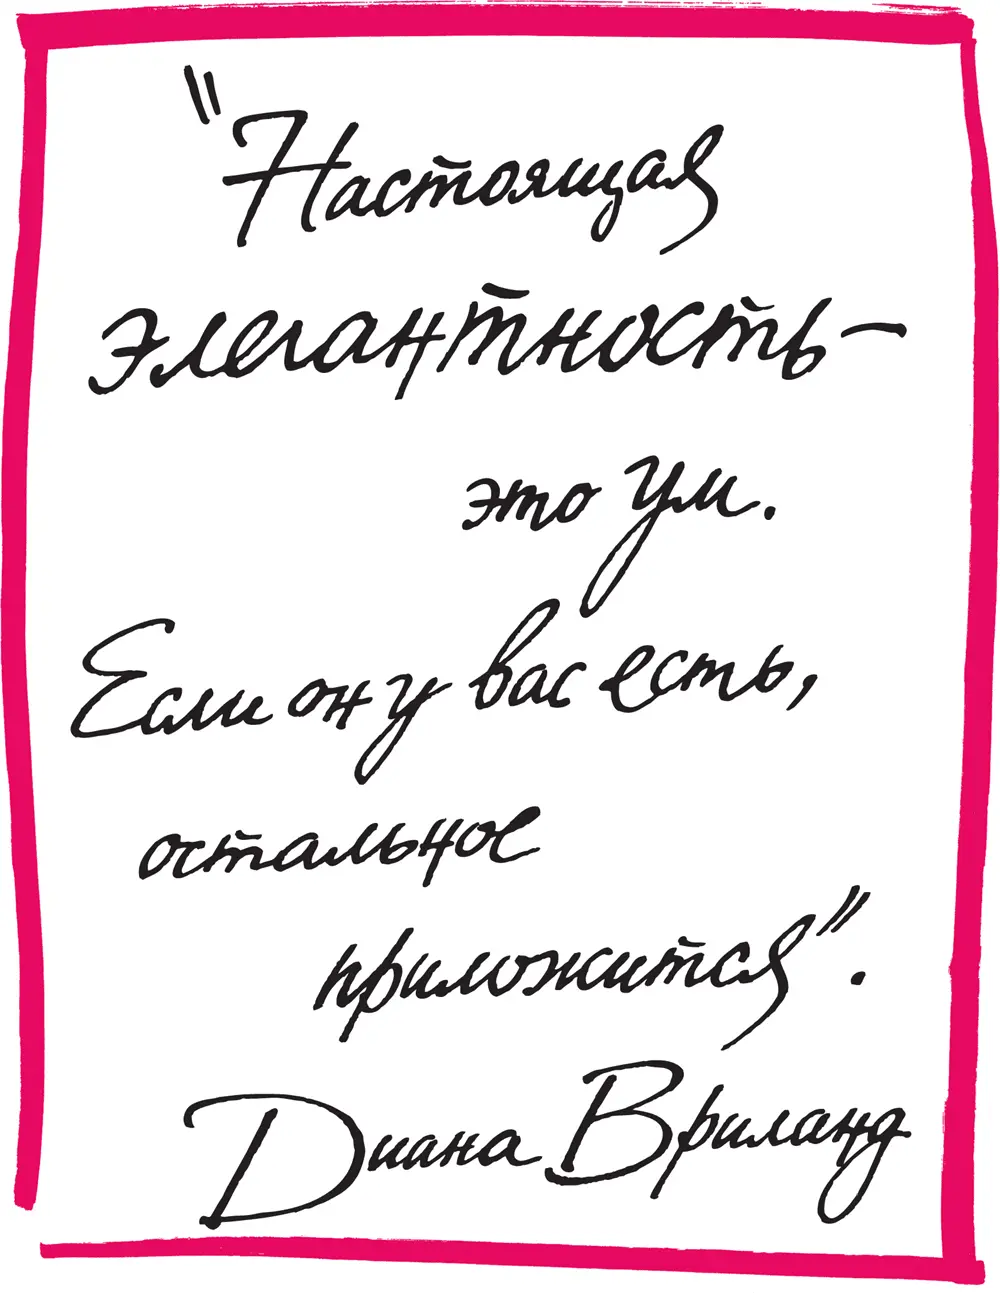 "Настоящая
элегантность —
это ум.
Если он у вас есть,
остальное
приложится".
Диана Вриланд